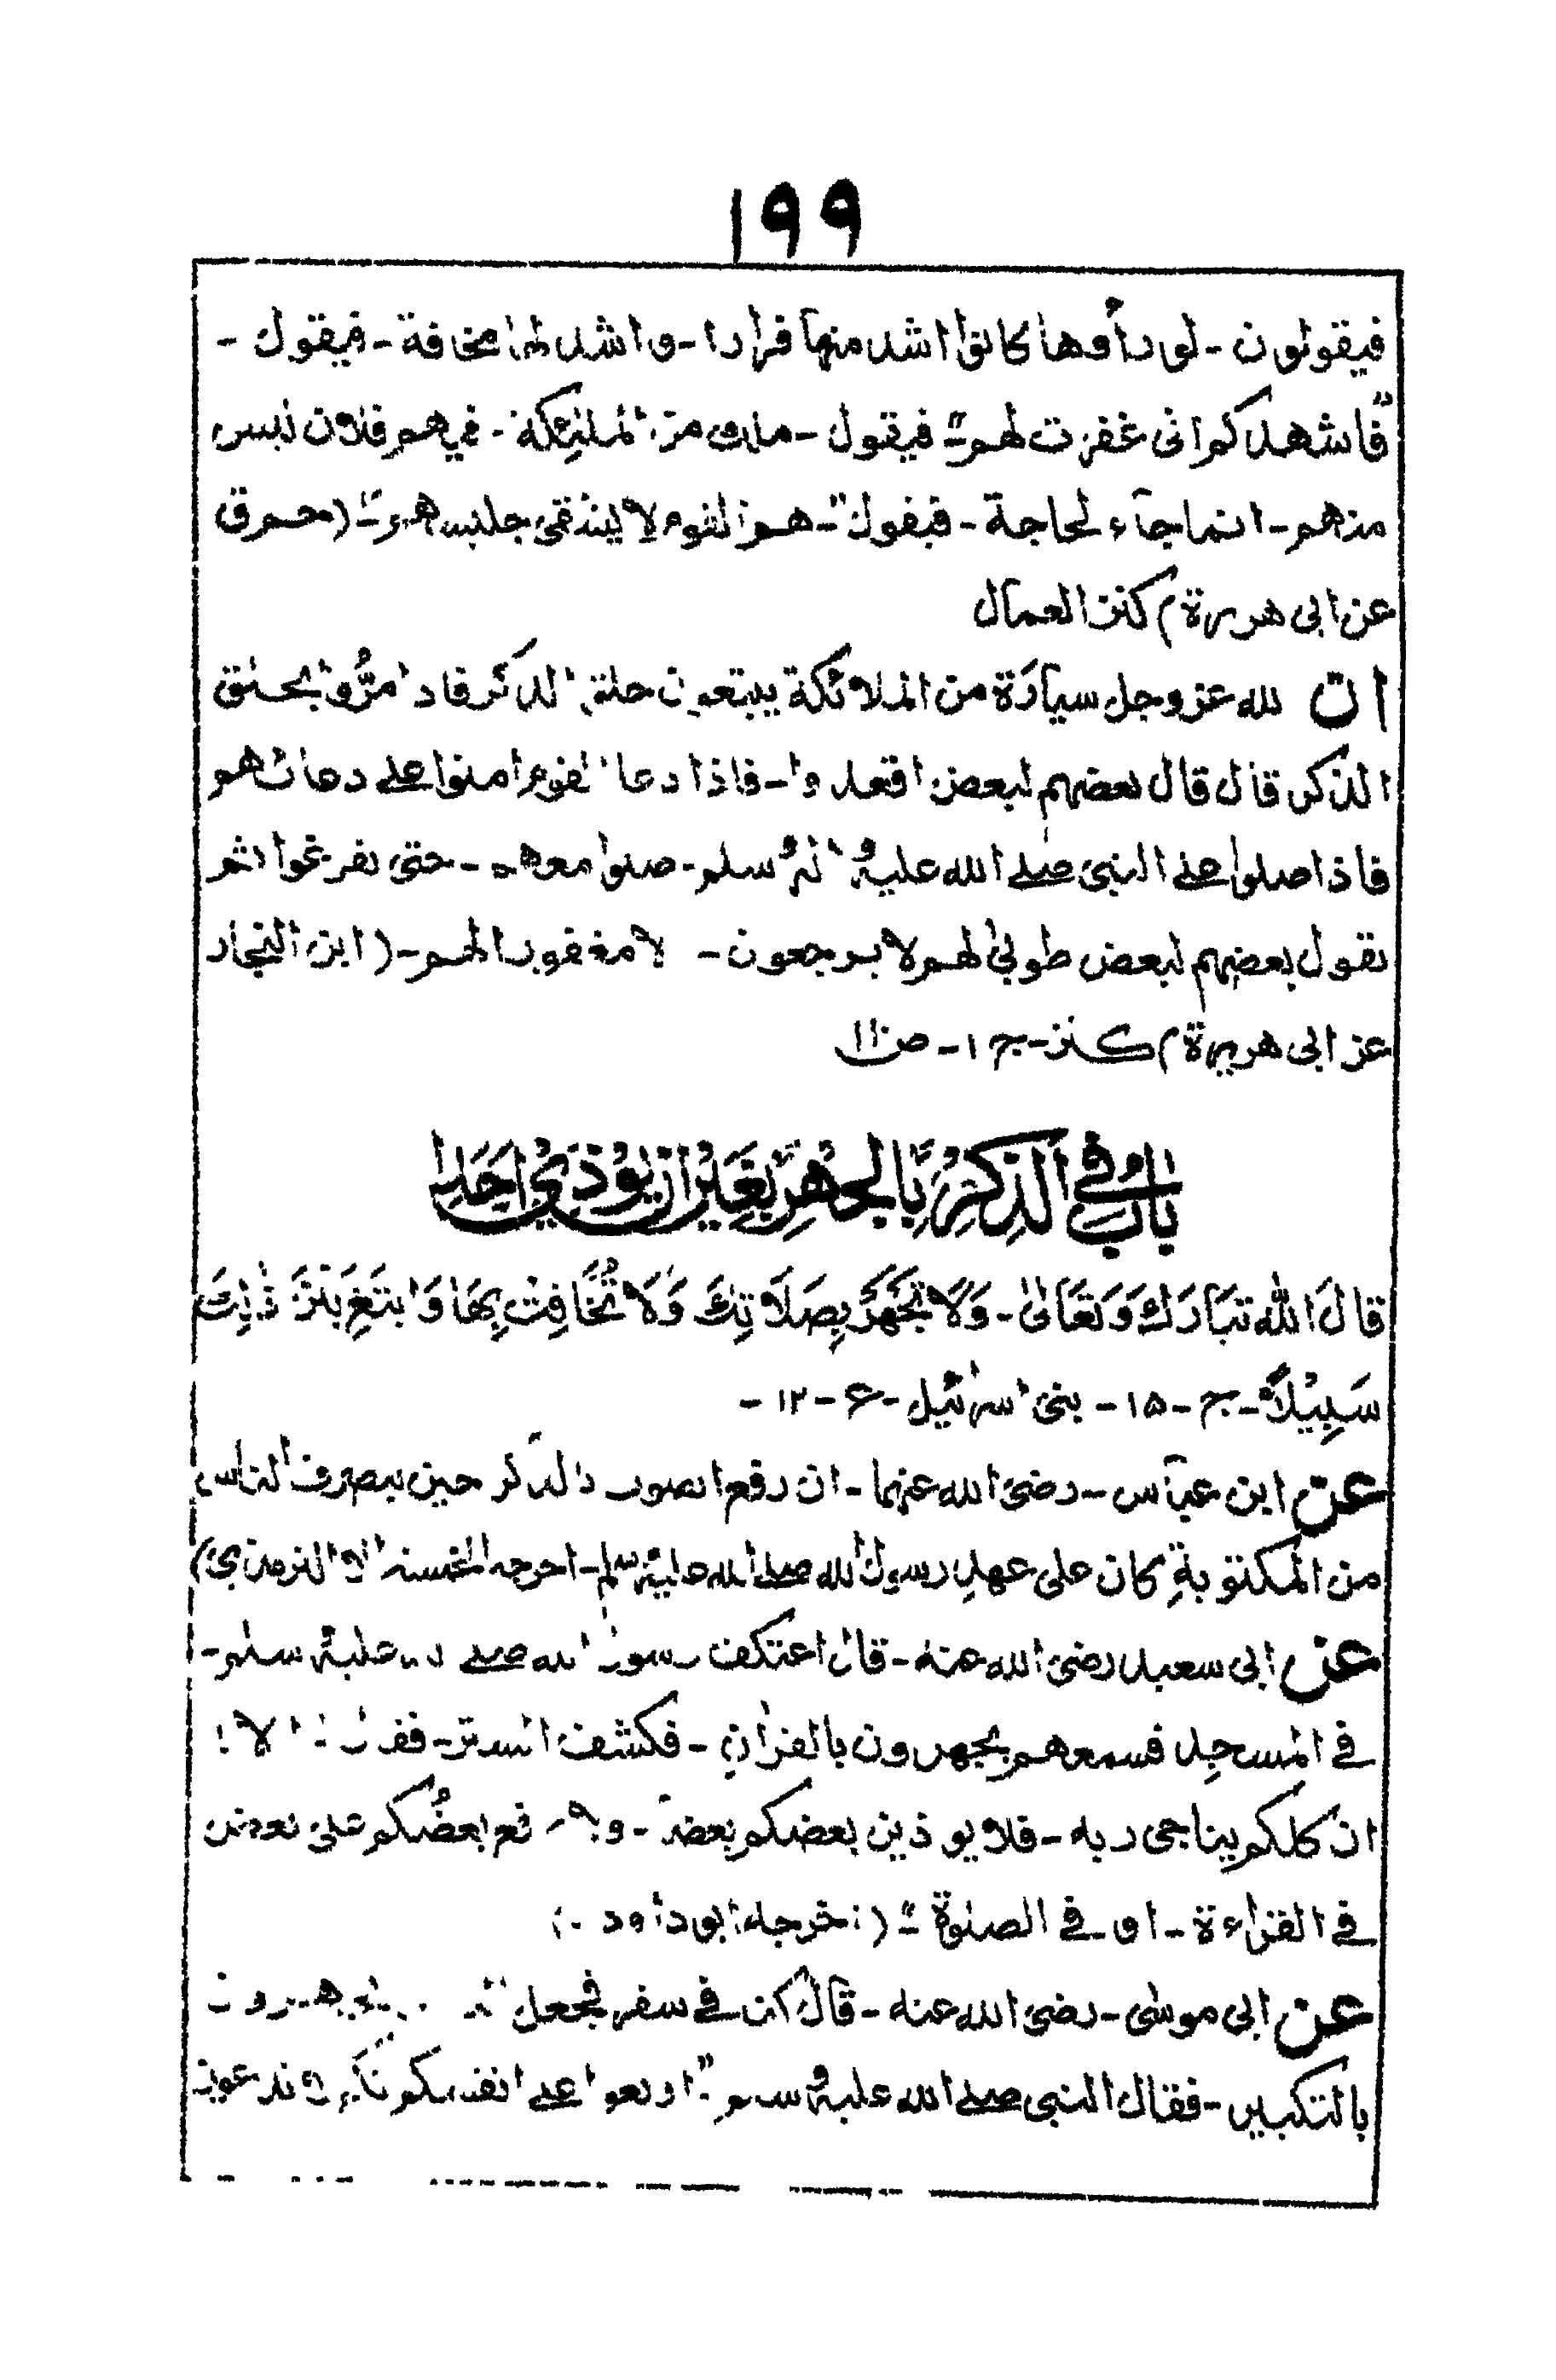 ١٩٩
فيقولون - لو رأوها كانوا اشد منها فرارا - واشد لها مخافة - فيقول -
"فاشهدكم انى غفرت لهم" فيقول - ملك من الملئكة - فيهم فلان ليس
منهم - انما جآء لحاجة - فيقول "هم القوم لا يشقى جليسهم" - (حم ق
عن ابى هريرة) كنز العمال
ان لله عز وجل سيارة من الملائكة يبتغون حلق الذكر فاذا مرُّوا بحلق
الذكر قال قال بعضهم لبعض اقعدوا - فاذا دعا القوم امنوا على دعائهم
فاذا صلوا على النبى صلى الله عليه وسلم - صلوا معهم - حتى يفرغوا ثم
يقول بعضهم لبعض طوبىٰ لهم لا يرجعون - الا مغفورا لهم - (ابن النجار
عن ابى هريرة) كنز - ج ١ - ص
بَابٌ فِي الذِّكْرِ بِالْجَهْرِ بِغَيْرِ اَنْ يُوْذِيَ اَحَدًا
قَالَ اللهُ تَبَارَكَ وَتَعَالىٰ - وَلَا تَجْهَرْ بِصَلَاتِكَ وَلَا تُخَافِتْ بِهَا وَابْتَغِ بَيْنَ ذٰلِكَ
سَبِيْلًا - ج - ١٥ - بنى اسرائيل - ع - ١٢ -
عن ابن عبّاس - رضى الله عنهما - ان رفع الصوت بالذكر حين ينصرف الناس
من المكتوبةِ كان على عهدِ رسول الله صلى الله عليه وسلم - اخرجه الخمسة الا الترمذى)
عن ابى سعيد رضى الله عنه - قال اعتكف رسول الله صلى الله عليه وسلم -
فى المسجِد فسمعهم يجهرون بالقراٰنِ - فكشف الستر - فقال "الا!
ان كلكم يناجى ربه - فلا يوذين بعضكم بعضًا - ولا يرفع بعضُكم على بعض
فى القراءة - او فى الصلوٰة" (اخرجه ابو داود -)
عن ابى موسٰى - رضى الله عنه - قال كنا فى سفر فجعل الناس يجهرون
بالتكبير - فقال النبى صلى الله عليه وسلم "اربعوا على انفسكم انكم لا تدعون